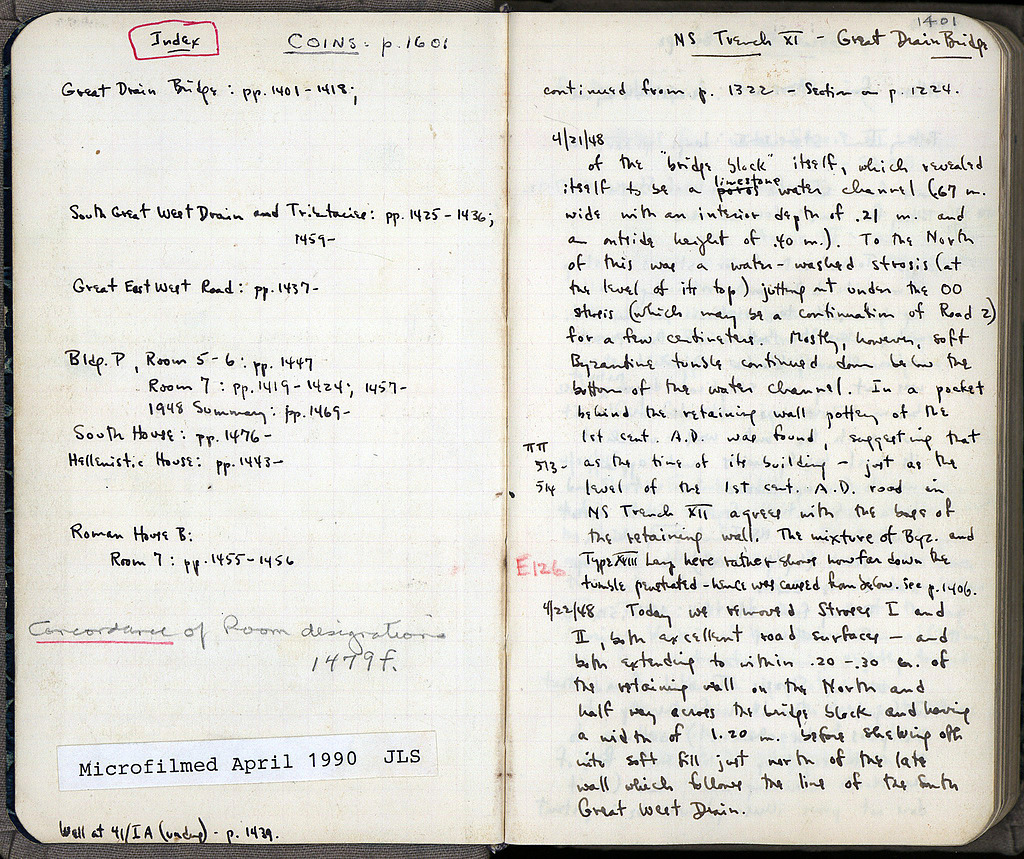 Index
COINS: p.1601
Great Drain Bridge: pp.1401-1418;
South Great West Drain and Tributaries: pp.1425-1436;
1459-
Great East West Road: pp.1437-
Bldg. P, Room 5-6: pp.1447
Room 7: pp.1419-1424; 1457-
1948 Summary: pp.1469-
South House: pp.1476-
Hellenistic House: pp.1443-
Roman House B:
Room 7: pp.1455-1456
Concordance of Room designations
1479f.
Microfilmed April 1990 JLS
Well at 41/IA - p.1439.
1401
NS Trench XI - Great Drain Bridge
continued from p. 1322 - Section on p. 1224.
4/21/48
of the "bridge block" itself, which revealed
itself to be a poros limestone water channel (.67 m.
wide with an interior depth of .21 m. and
an outside height of .40 m.). To the North
of this was a water-washed strosis (at
the level of its top) jutting out under the OO
stosis (which may be a continuation of Road 2)
for a few centimeters. Mostly, however, soft
Byzantine tumble continued down below the
bottom of the water channel. In a pocket
behind the retaining wall pottery of the
1st cent. A.D. was found, suggesting that
ΠΠ
513- as the time of its building - just as the
514 level of the 1st cent. A.D. road in
NS Trench XII agrees with the base of
the retaining wall. The mixture of Byz. and
E126 Type XVIII here rather shows how far down the
tumble penetrated - hence was caused from below. See p.1406.
4/22/48 Today we removed Stroses I and
II, both excellent road surfaces - and
both extending to within .20 -.30 cm. of
the retaining wall on the North and
half way across the bridge block and having
a width of 1.20 m. before shelving off
into soft fill just north of the late
wall which follows the line of the South
Great West Drain.